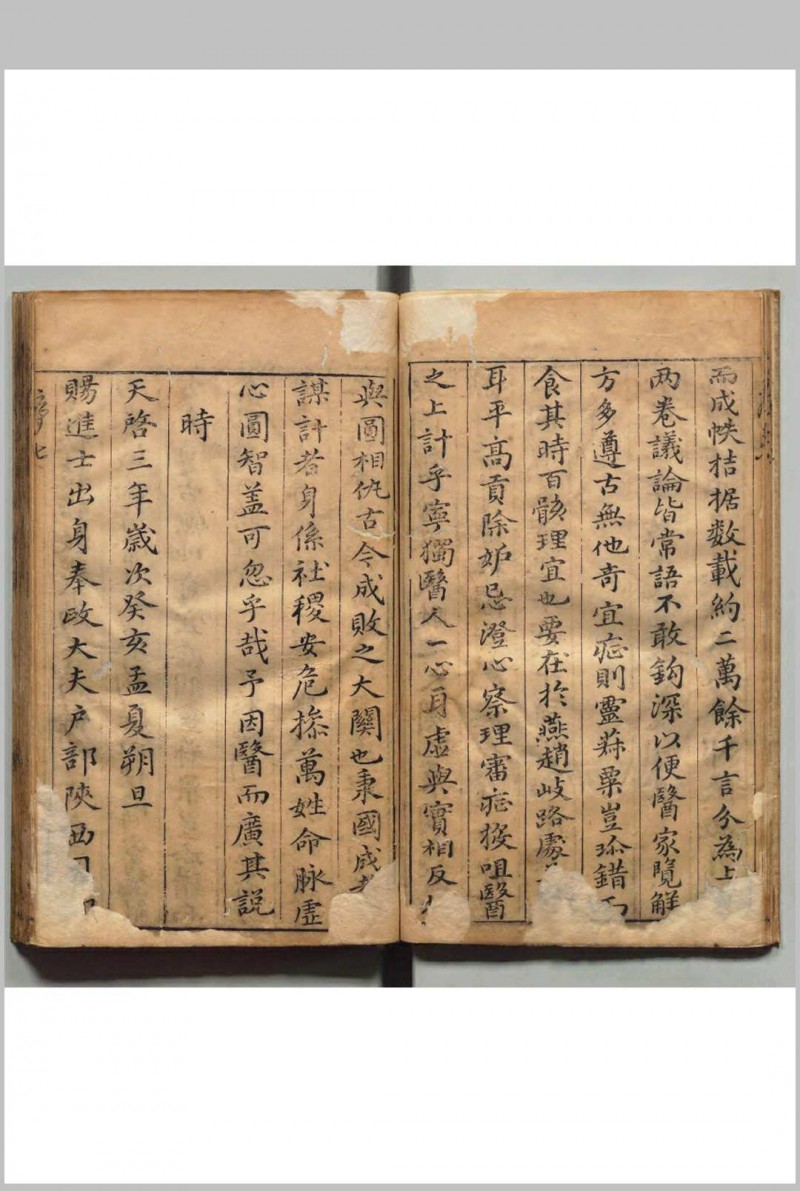 而成帙拮据数載約二萬餘千言分為上
两卷議論皆常語不敢鈎深以便醫家覧觧
方多遵古無他奇宜症則靈菽粟豈珎錯
食其時百骸理宜也要在於燕趙歧路處
耳平髙貢除妒忌澄心察理審症按咀醫
之上計乎寧獨醫人一心身虛與實相反
與圓相仇古今成敗之大関也秉國成
謀計者身係社稷安危捴萬姓命脉虛
心圓智盖可忽乎哉予因醫而廣其説
時
天啓三年歳次癸亥孟夏朔旦
賜進士出身奉政大夫戶部陝西
序
七